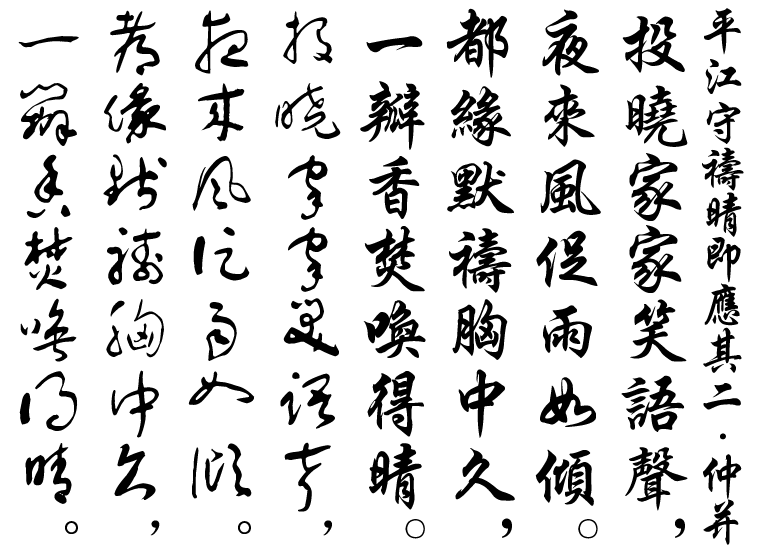 平江守禱晴即應其二·仲并
投曉家家笑語聲，
夜來風促雨如傾。
都緣默禱胸中久，
一瓣香焚喚得晴。
投曉家家笑語聲，
夜來風促雨如傾。
都緣默禱胸中久，
一瓣香焚喚得晴。